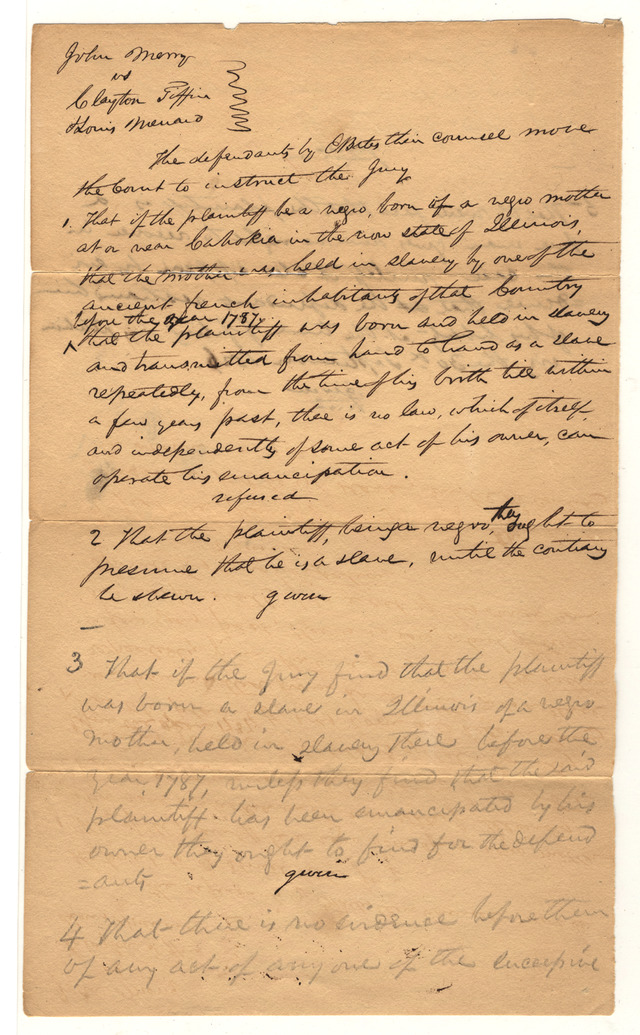 John Merry
vs
Clayton Tiffin
& Louis Menard
The defendants by E Bates their counsel move
the Court to instruct the Jury
1. That if the plaintiff be a negro, born of a negro mother
at or near Cahokia in the now state of Illinois,
that the mother was held in slavery by one of the
ancient french inhabitants of that Country
before the year 1787,
that the plaintiff was born and held in slavery
and transmitted from hand to hand as a slave
repeatedly, from the time of his birth till within
a few years past, there is no law, which of itself,
and independently of some act of his owner, can
operate his emancipation.
refused
2 That the plaintiff, being a negro, they ought to
presume that he is a slave, until the contrary
be shewn. given
3 That if the Jury find that the plaintiff
was born a slave in Illinois of a negro
mother, held in slavery there before the
year 1787, unless they find that the said
plaintiff has been emancipated by his
owner they ought to find for the defend
=ants
given
4 That there is no evidence before them
of any act of any one of the successive